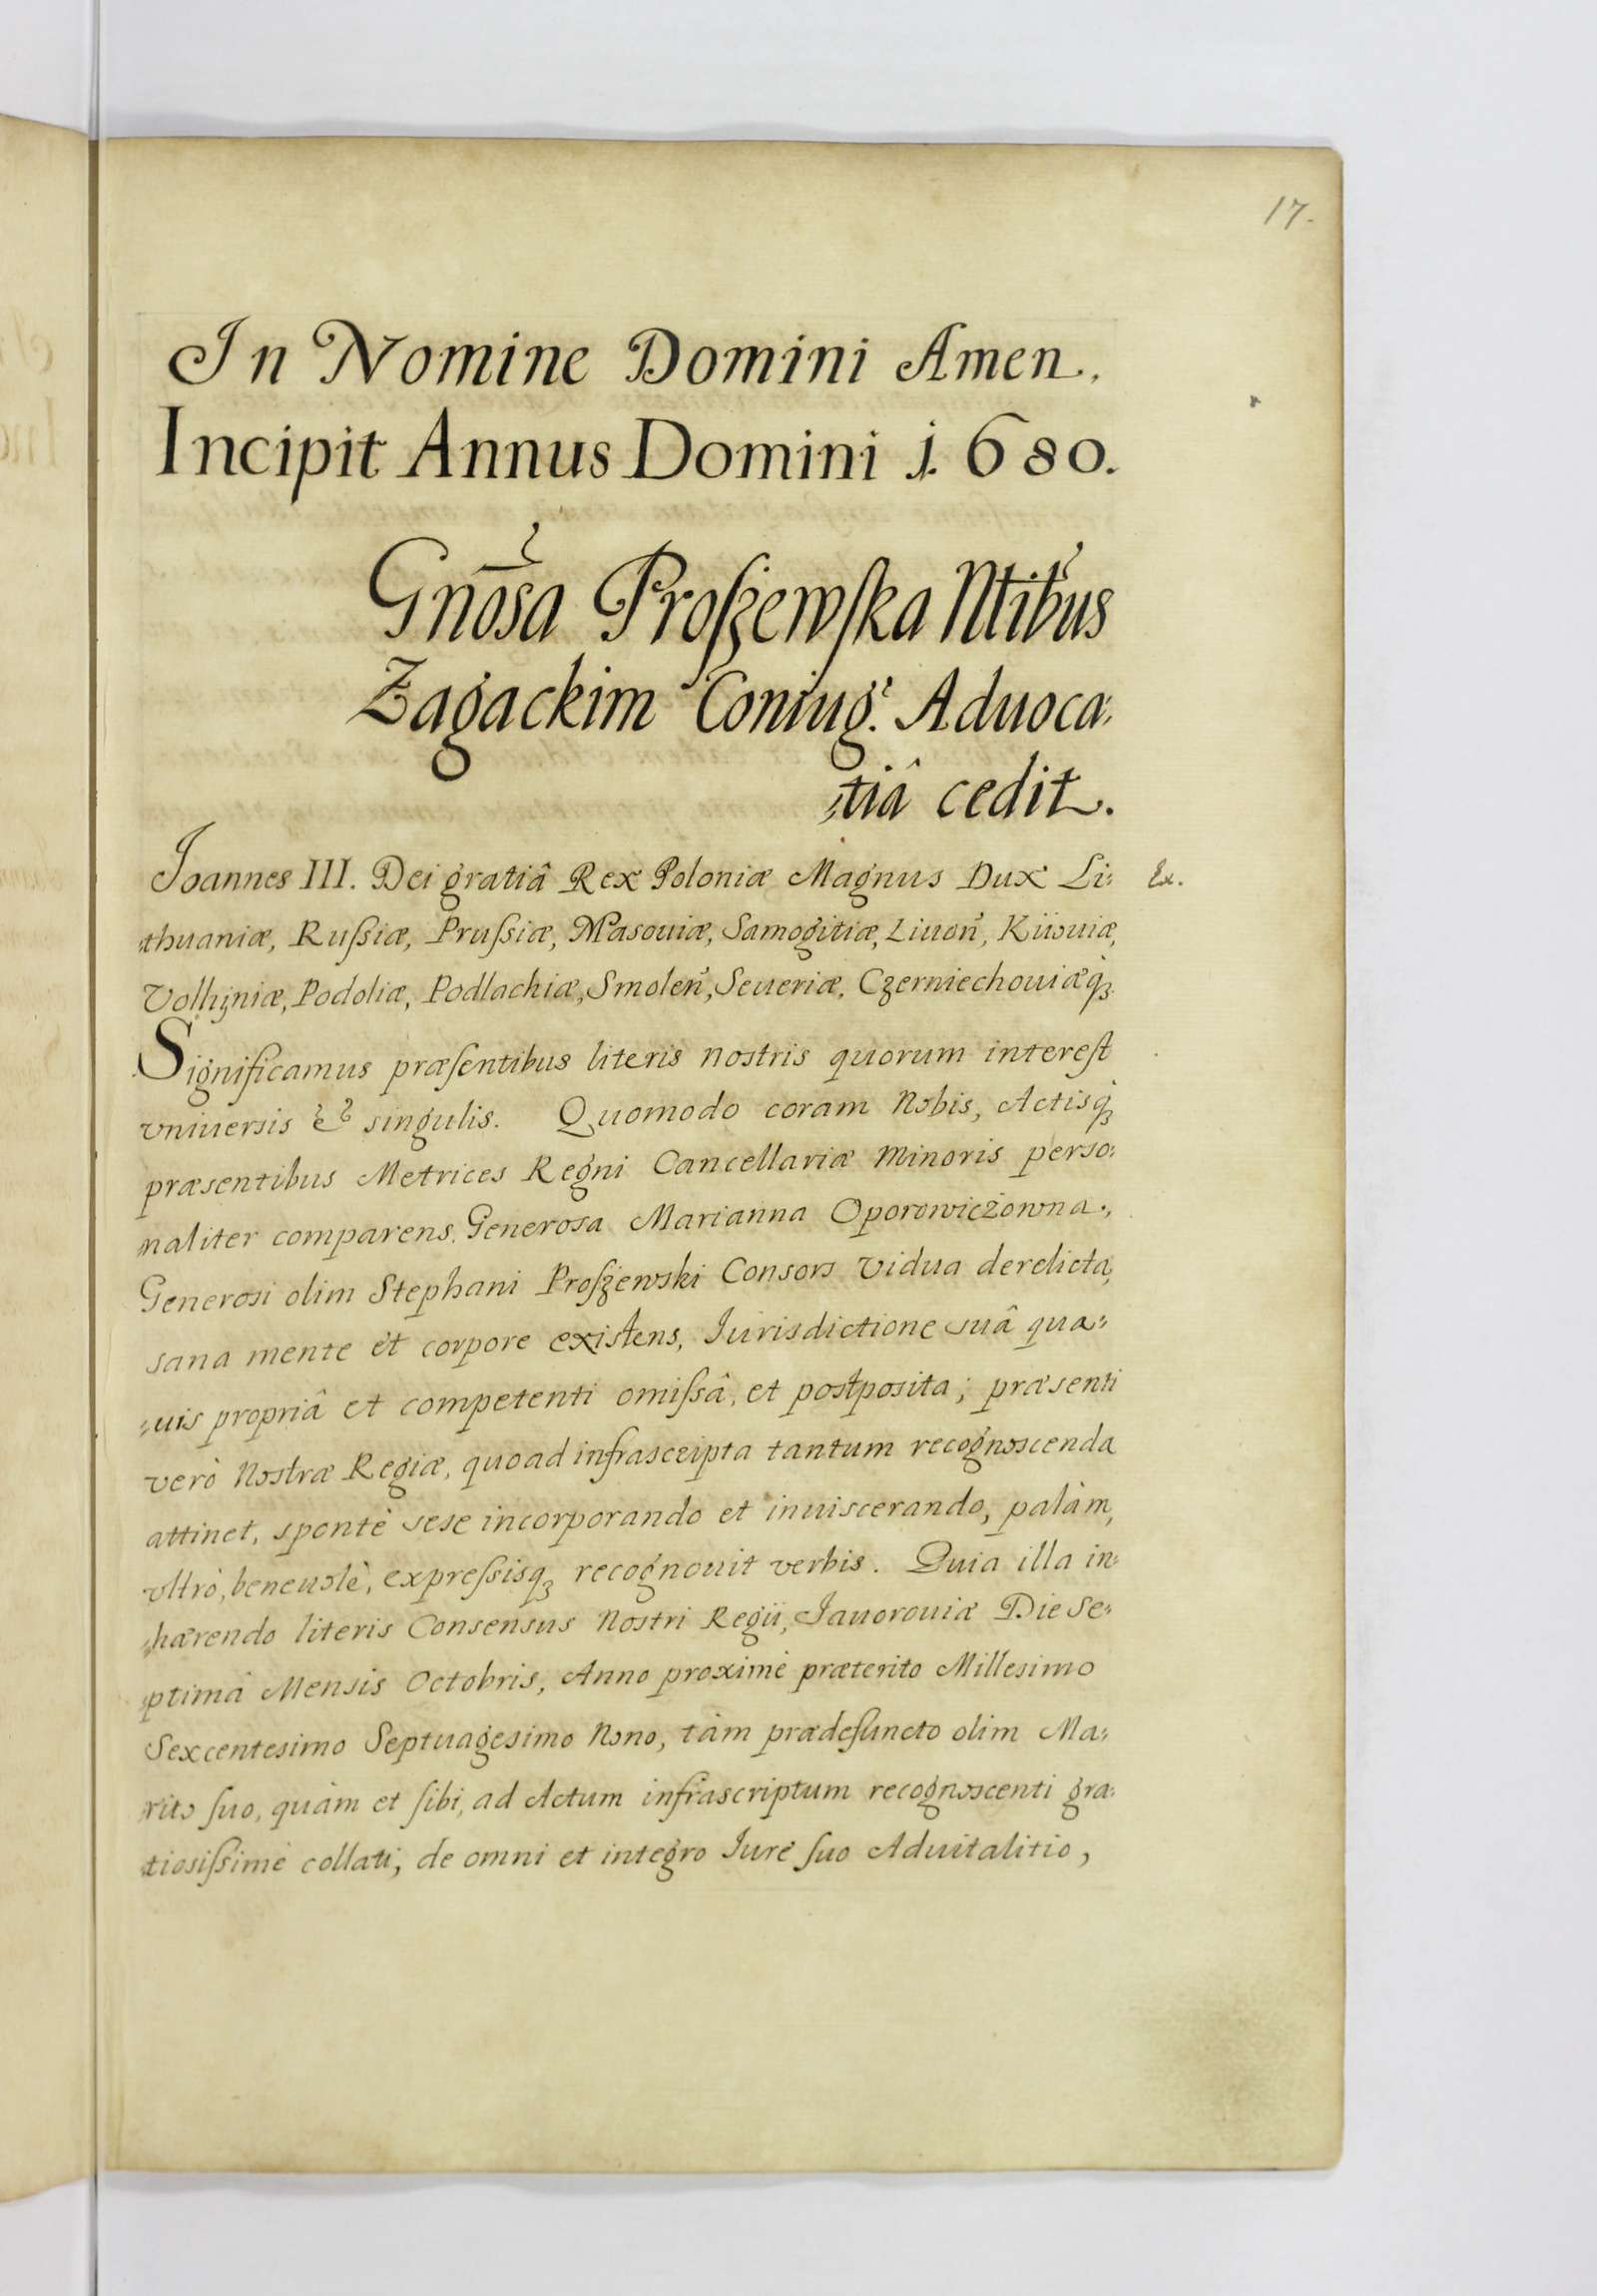 17.
In Nomine Domini Amen.
Incipit Annus Domini 1680.
Gnosa Proßewska Ntibus
Zagackim Coniug. Aduoca⸗
⸗tiâ cedit.
Joannes III. Dei gratiâ Rex Poloniæ Magnus Dux Li⸗
Ex.
thuaniæ, Rußiæ, Prußiæ, Masouiæ, Samogitiæ, Liuon, Kijouiæ,
Volhÿniæ, Podoliæ, Podlachiæ, Smolen, Seueriæ, Czerniechouiæq́₃
Significamus præsentibus literis nostris quorum interest
vniuersis & singulis. Quomodo coram Nobis, Actisq́₃
præsentibus Metrices Regni Cancellariæ Minoris perso⸗
naliter comparens Generosa Marianna Oporowiczowna,
Generosi olim Stephani Proszewski Consors Vidua derelicta,
sana mente et corpore existens, Jurisdictione suâ qua⸗
⸗uis propriâ et competenti omißâ, et postposita; præsenti
verò Nostræ Regiæ, quoad infrascripta tantum recognoscenda
attinet, spontè sese incorporando et inuiscerando, palàm,
vltrò, beneuolè, expreßisq₃ recognouit verbis. Quia illa in⸗
⸗hærendo literis Consensus Nostri Regii, Jauorouiæ Die Se⸗
ptimâ Mensis Octobris, Anno proximè præterito Millesimo
Sexcentesimo Septuagesimo Nono, tàm prædefuncto olim Ma⸗
rito suo, quàm et sibi, ad Actum infrascriptum recognoscenti gra⸗
tiosißimè collati, de omni et integro Jure suo Aduitalitio,